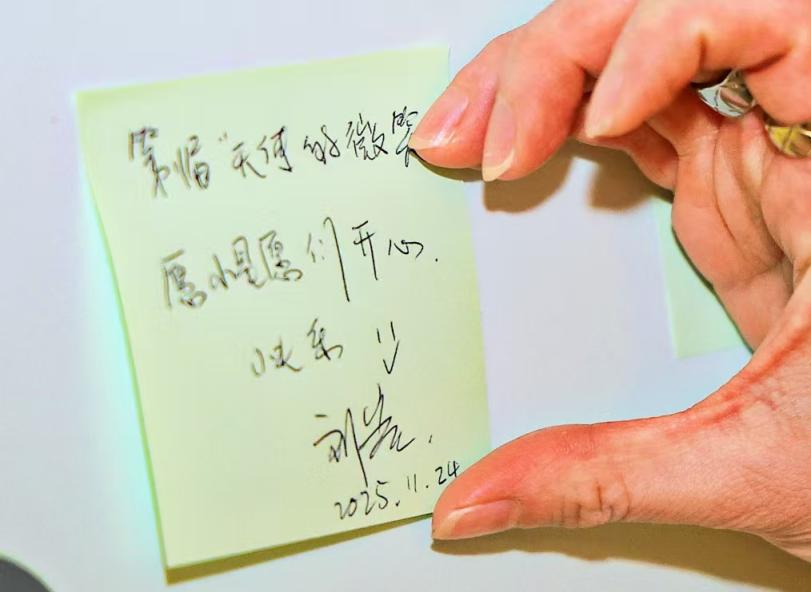 "天使的微笑
愿小星愿们开心.
快乐 :)
刘岩.
2025.11.24